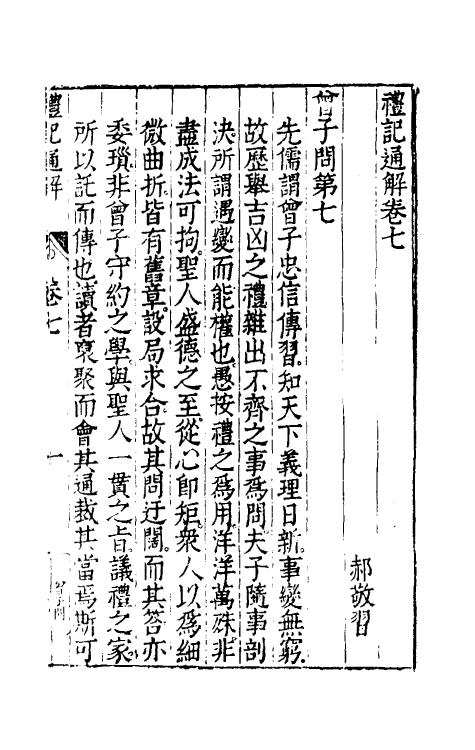 禮記通解卷七
郝敬習
曾子問第七
先儒謂曾子忠信傳習知天下義理日新事變無窮
故歷舉吉凶之禮雜出不齊之事爲問夫子隨事剖
決所謂遇變而能權也愚按禮之爲用洋洋萬殊非
盡成法可拘聖人盛德之至從心即矩衆人以爲細
微曲折皆有舊章設局求合故其問迂闊而其答亦
委瑣非曾子守約之學與聖人一貫之旨議禮之家
所以託而傳也讀者裒聚而會其通裁其當焉斯可
禮記通解
卷七
一